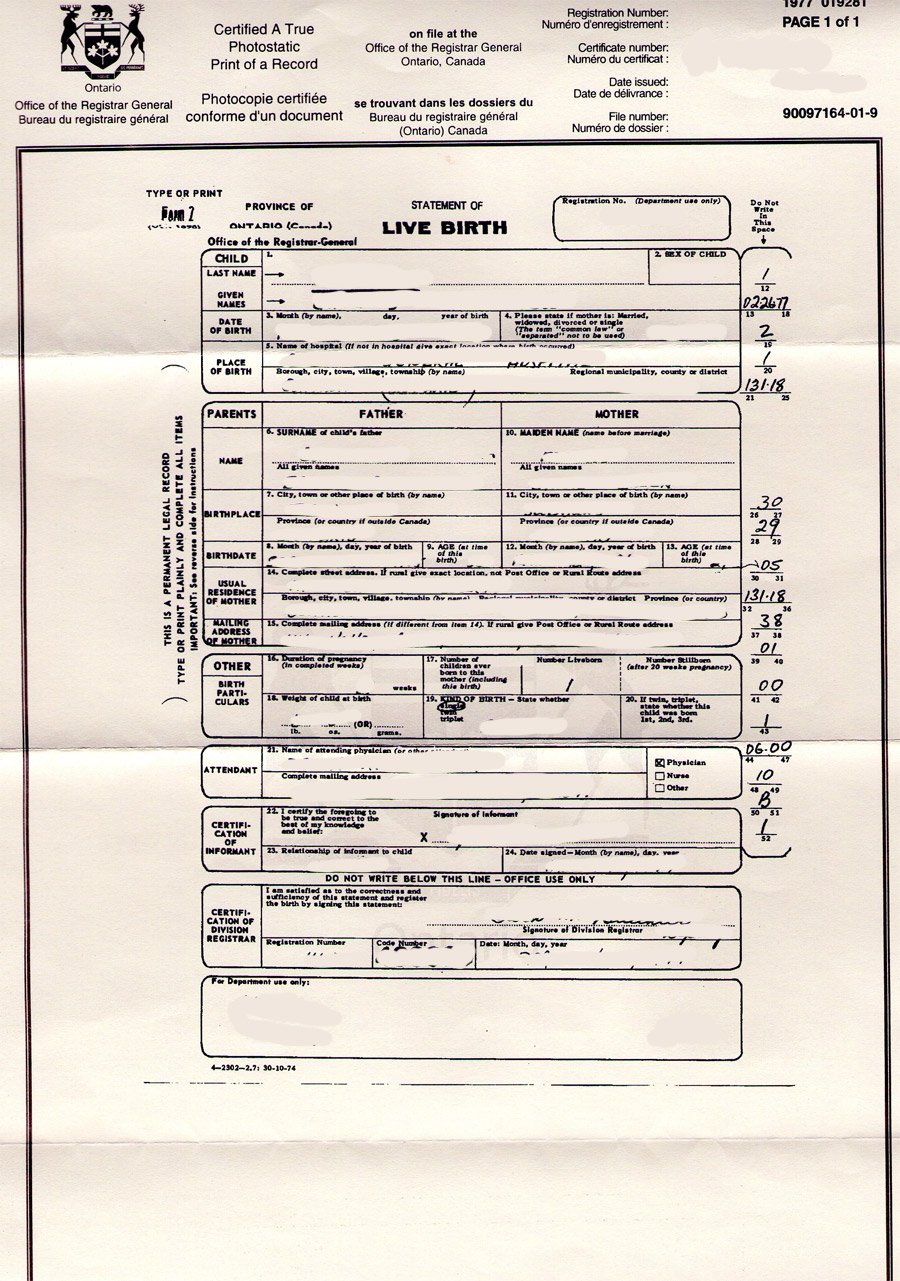 1977 019281
PAGE 1 of 1
Ontario
Office of the Registrar General
Bureau du registraire général
Certified A True
Photostatic
Print of a Record
Photocopie certifiée
conforme d'un document
on file at the
Office of the Registrar General
Ontario, Canada
se trouvant dans les dossiers du
Bureau du registraire général
(Ontario) Canada
Registration Number:
Numéro d'enregistrement :
Certificate number:
Numéro du certificat :
Date issued:
Date de délivrance :
File number:
Numéro de dossier :
90097164-01-9
TYPE OR PRINT
PROVINCE OF
ONTARIO (Canada)
Office of the Registrar-General
STATEMENT OF
LIVE BIRTH
Registration No. (Department use only)
Do Not
Write
In
This
Space
CHILD
1.
2. SEX OF CHILD
LAST NAME
1
12
GIVEN
NAMES
022677
13 18
DATE
OF BIRTH
3. Month (by name), day, year of birth
4. Please state if mother is: Married,
widowed, divorced or single
(The term "common law" or
"separated" not to be used)
2
19
PLACE
OF BIRTH
5. Name of hospital (If not in hospital give exact location where birth occurred)
1
20
Borough, city, town, village, township (by name)
Regional municipality, county or district
131.18
21 25
PARENTS
FATHER
MOTHER
NAME
6. SURNAME of child's father
10. MAIDEN NAME (name before marriage)
All given names
All given names
BIRTHPLACE
7. City, town or other place of birth (by name)
11. City, town or other place of birth (by name)
30
26 27
Province (or country if outside Canada)
Province (or country if outside Canada)
29
28 29
BIRTHDATE
8. Month (by name), day, year of birth
9. AGE (at time
of this
birth)
12. Month (by name), day, year of birth
13. AGE (at time
of this
birth)
05
30 31
USUAL
RESIDENCE
OF MOTHER
14. Complete street address. If rural give exact location, not Post Office or Rural Route address
Borough, city, town, village, township (by name) Regional municipality, county or district Province (or country)
131.18
32 36
MAILING
ADDRESS
OF MOTHER
15. Complete mailing address (if different from item 14). If rural give Post Office or Rural Route address
38
37 38
THIS IS A PERMANENT LEGAL RECORD
TYPE OR PRINT PLAINLY AND COMPLETE ALL ITEMS
IMPORTANT: See reverse side for instructions
OTHER
BIRTH
PARTI-
CULARS
16. Duration of pregnancy
(in completed weeks)
weeks
17. Number of
children ever
born to this
mother (including
this birth)
Number Liveborn
1
Number Stillborn
(after 20 weeks pregnancy)
01
39 40
00
41 42
18. Weight of child at birth
lb. oz. (OR) grams.
19. KIND OF BIRTH – State whether
single
twin
triplet
20. If twin, triplet,
state whether this
child was born
1st, 2nd, 3rd.
1
43
ATTENDANT
21. Name of attending physician
Complete mailing address
Physician
Nurse
Other
06.00
44 47
10
48 49
B
50 51
CERTIFI-
CATION
OF
INFORMANT
22. I certify the foregoing to
be true and correct to the
best of my knowledge
and belief:
Signature of informant
X
1
52
23. Relationship of informant to child
24. Date signed—Month (by name), day, year
DO NOT WRITE BELOW THIS LINE – OFFICE USE ONLY
CERTIFI-
CATION OF
DIVISION
REGISTRAR
I am satisfied as to the correctness and
sufficiency of this statement and register
the birth by signing this statement:
Signature of Division Registrar
Registration Number
Code Number
Date: Month, day, year
For Department use only:
4—2302—2.7: 30-10-74